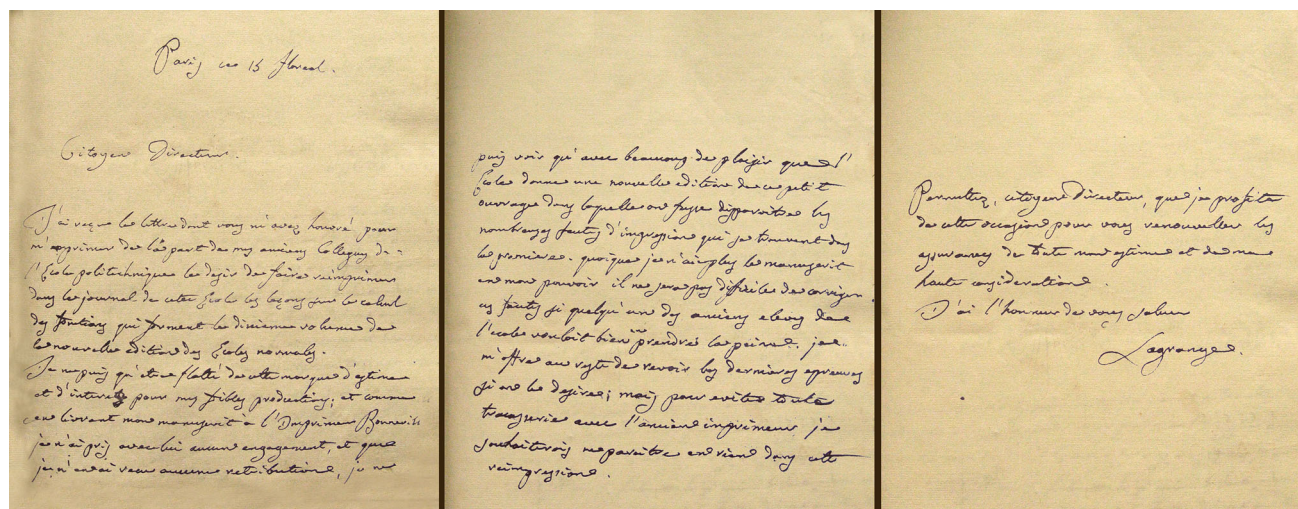 Paris ce 15 floreal.
Citoyen Directeur.
J'ai reçu la lettre dont vous m'avez honoré pour
m'exprimer de la part de mes anciens Collegues de
l'Ecole politechnique le desir de faire reimprimer
dans le journal de cette Ecole les leçons sur le calcul
des fonctions qui forment le dixieme volume de
la nouvelle edition des Ecoles normales.
Je ne puis qu'etre flatté de cette marque d'estime
et d'interet pour mes foibles productions; et comme
en livrant mon manuscrit à l'Imprimeur
je n'ai pris avec lui aucun engagement, et que
je n'en ai reçu aucune retribution, je ne
puis voir qu'avec beaucoup de plaisir que l'
Ecole donne une nouvelle edition de ce petit
ouvrage dans laquelle on fasse disparoitre les
nombreuses fautes d'impression qui se trouvent dans
la premiere. quoique je n'aie plus le manuscrit
en mon pouvoir il ne sera pas difficile de corriger
ces fautes si quelqu'un des anciens eleves de
l'ecole vouloit bien en prendre la peine. je
m'offre au reste de revoir les dernieres epreuves
si on le desire; mais pour eviter toute
tracasserie avec l'ancien imprimeur je
souhaiterois ne paroitre en rien dans cette
reimpression.
Permettez, citoyen Directeur, que je profite
de cette occasion pour vous renouveller les
assurances de toute mon estime et de ma
haute consideration.
J'ai l'honneur de vous saluer
Lagrange.